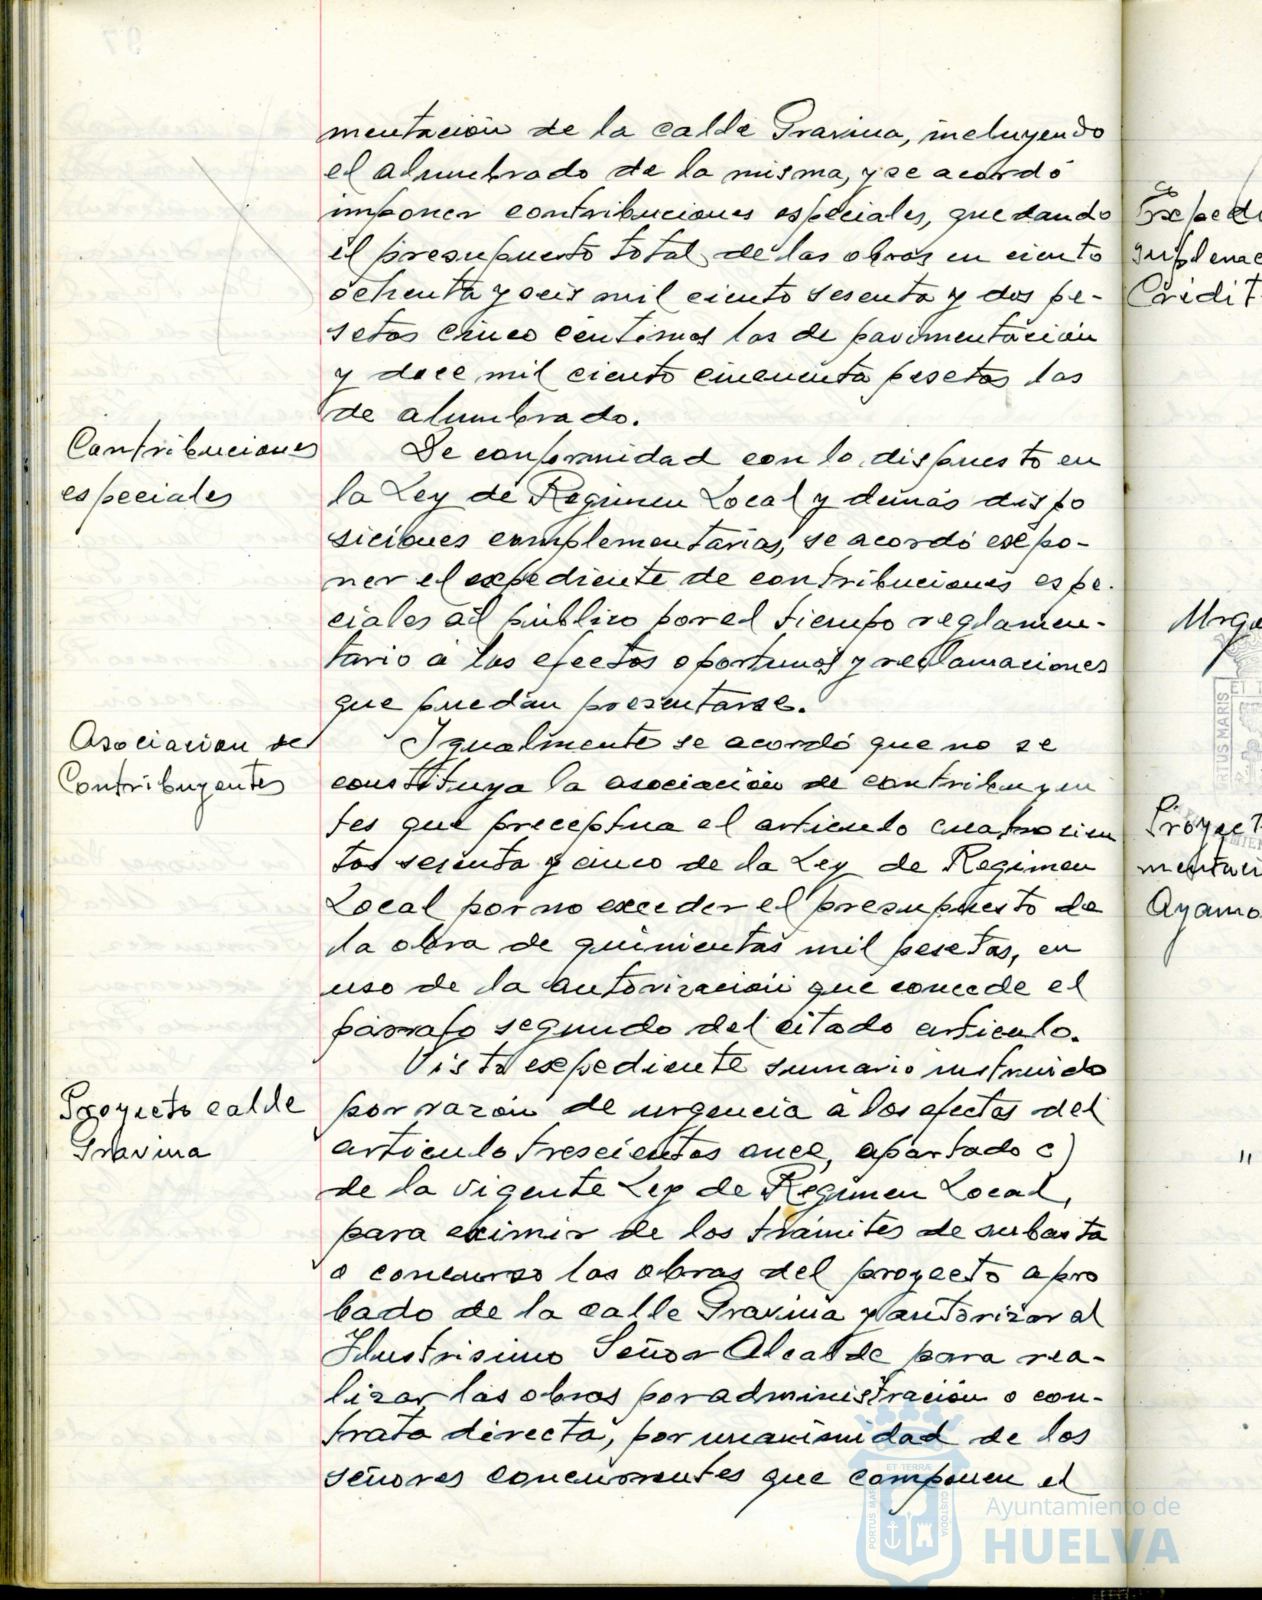 mentación de la calle Gravina, incluyendo
el alumbrado de la misma, y se acordó
imponer contribuciones especiales, quedando
el presupuesto total de las obras en ciento
ochenta y seis mil ciento sesenta y dos pe-
setas cinco centimos las de pavimentación
y doce mil ciento cincuenta pesetas las
de alumbrado.
Contribuciones
especiales
De conformidad con lo dispuesto en
la Ley de Regimen Local y demás dispo
siciones complementarias, se acordó expo-
ner el expediente de contribuciones espe-
ciales al público por el tiempo reglamen-
tario a los efectos oportunos y reclamaciones
que puedan presentarse.
Asociacion de
Contribuyentes
Igualmente se acordó que no se
constituya la asociación de contribuyen
tes que preceptua el articulo cuatrocien
tos sesenta y cinco de la Ley de Regimen
Local por no exceder el presupuesto de
la obra de quinientas mil pesetas, en
uso de la autorización que concede el
párrafo segundo del citado articulo.
Proyecto calle
Gravina
Visto expediente sumario instruido
por razón de urgencia a los efectos del
articulo trescientos once, apartado c)
de la vigente Ley de Regimen Local,
para eximir de los trámites de subasta
o concurso las obras del proyecto apro
bado de la calle Gravina y autorizar al
Ilustrisimo Señor Alcalde para rea-
lizar las obras por administración o con-
trata directa, por unanimidad de los
señores concurrentes que componen el
Expedi
suplemen
Crédit
Urge
PORTUS MARIS
Proyect
mentaci
Ayamo
"
ET TERRÆ
PORTUS MARIS
CUSTODIA
Ayuntamiento de
HUELVA